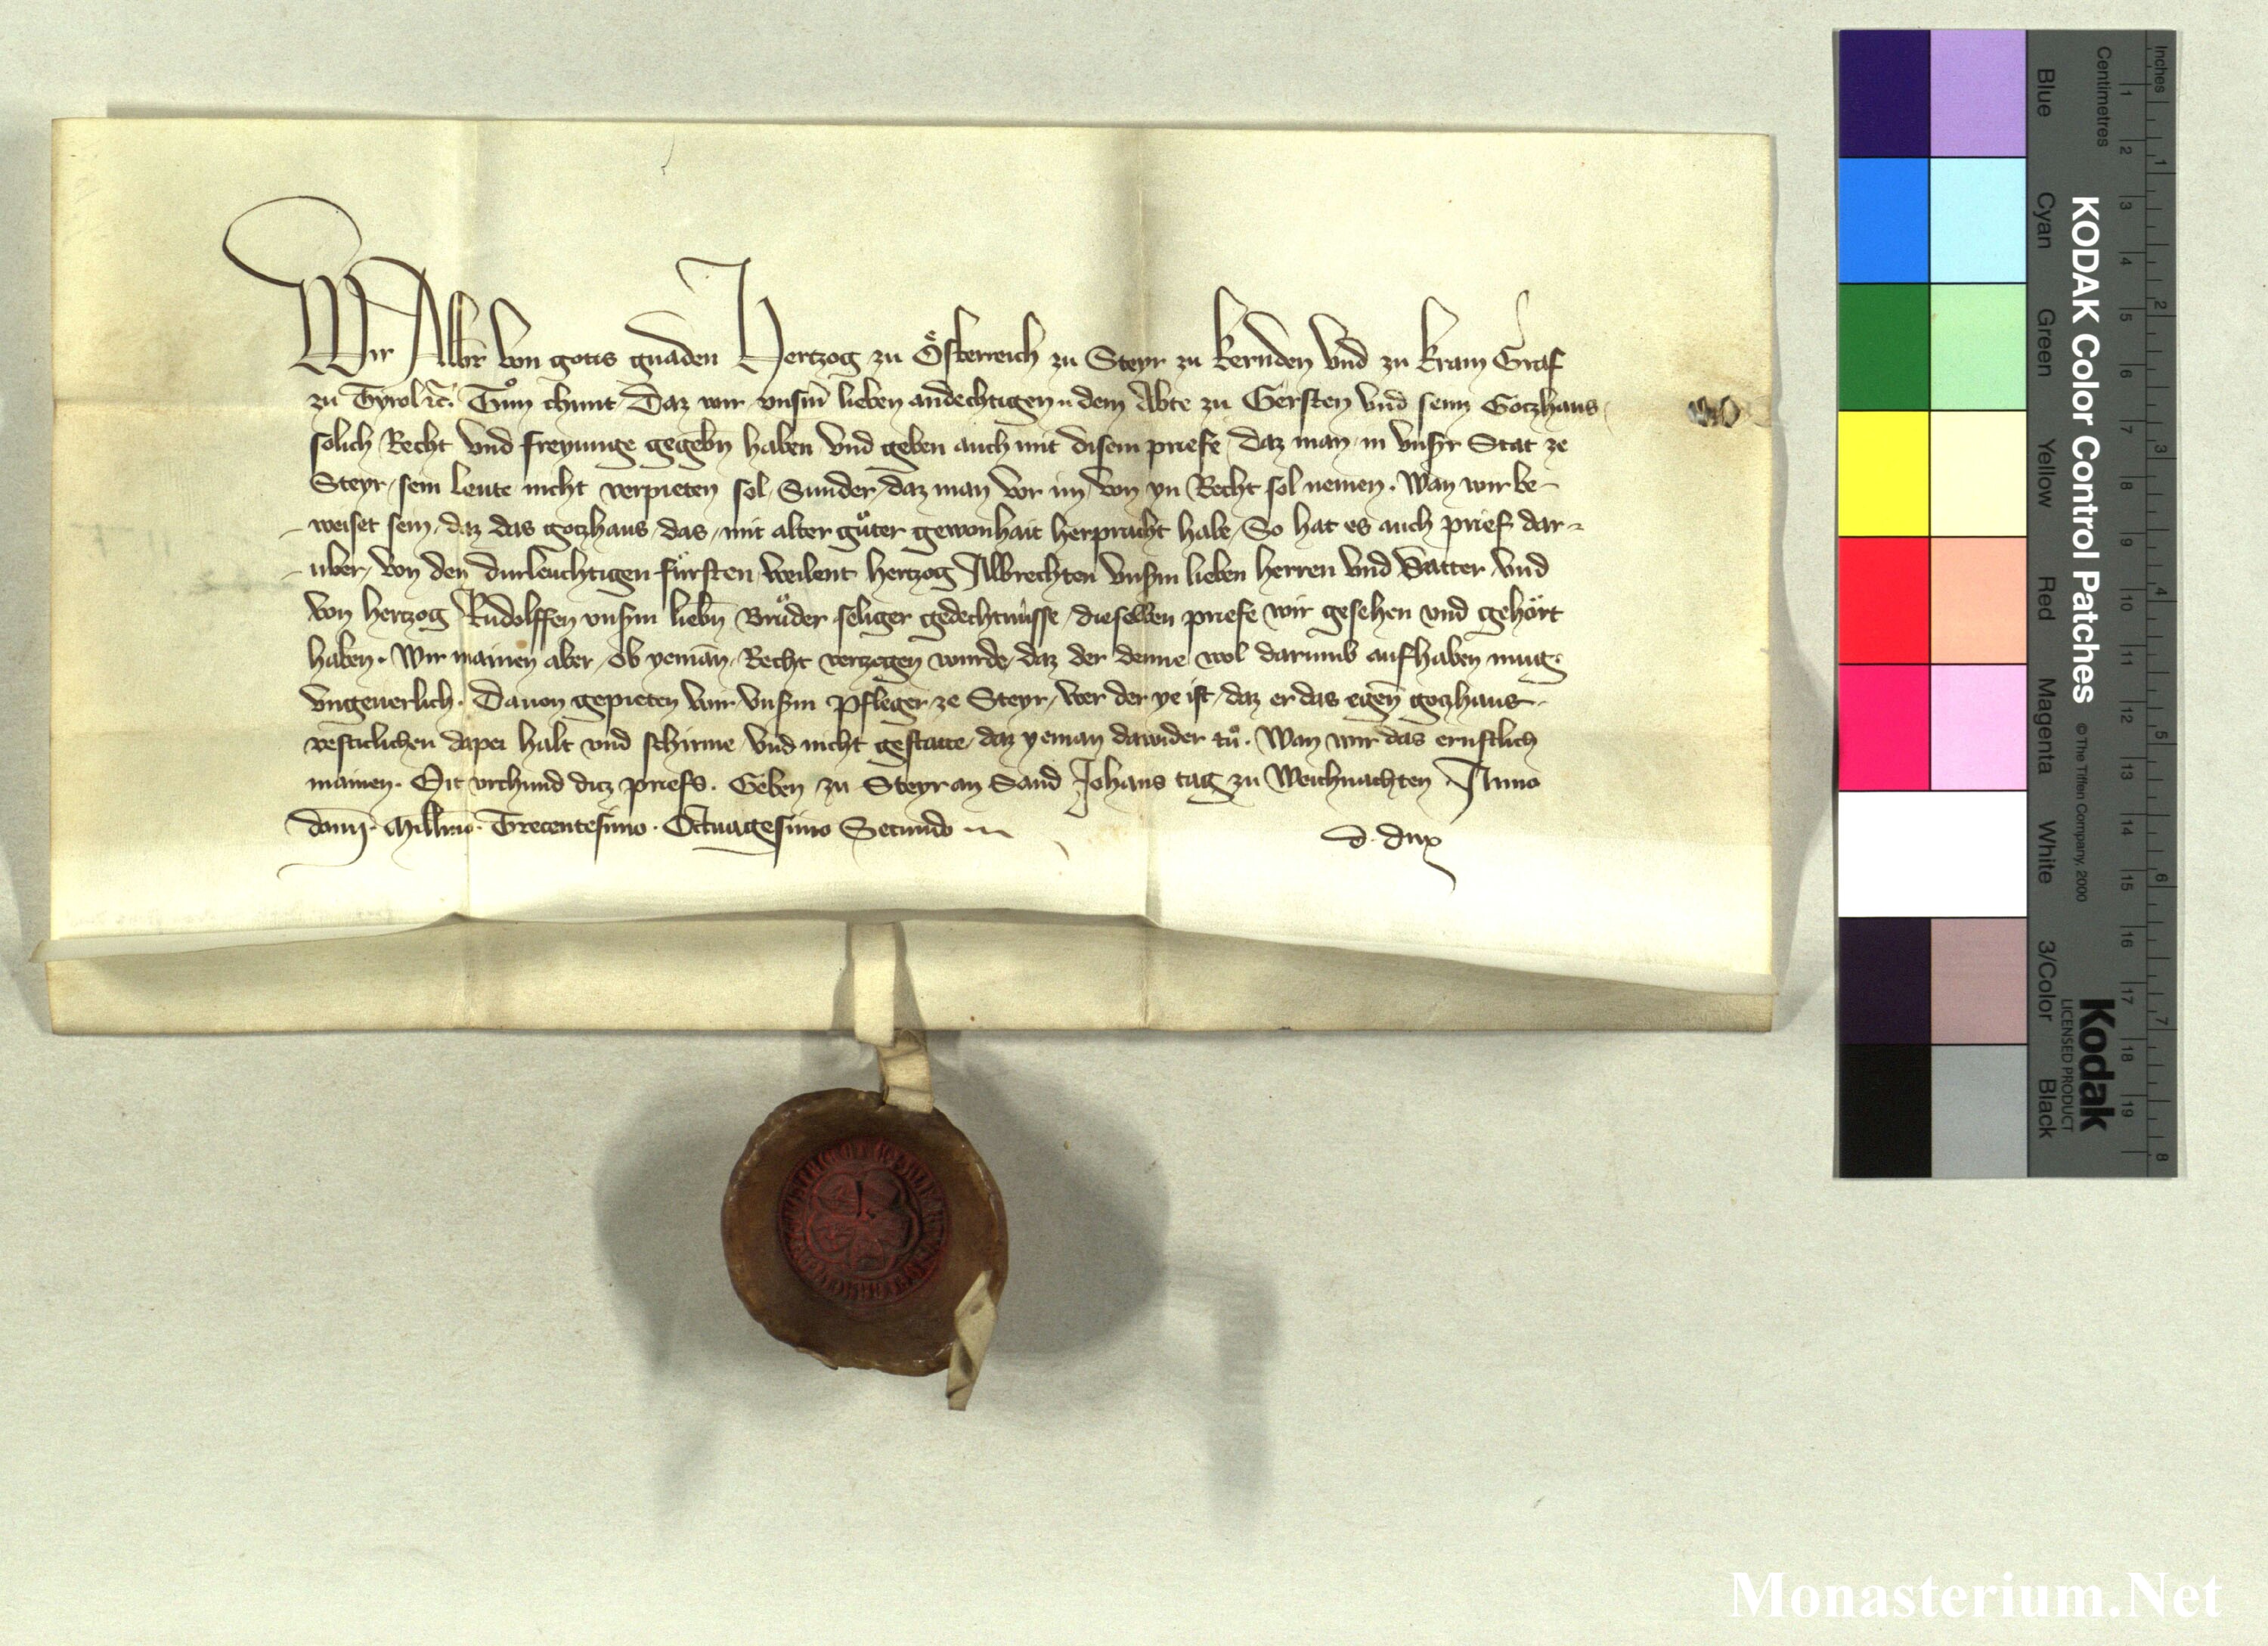 Wir Albr von gotes gnaden Hertzog zu Österreich zu Steyr zu Kernden Und zu Krain Graf
zu Tyrol etc. Tůn chunt Daz wir unserm lieben andechtigen .. dem Abte zu Gersten Und seim Gotzhaus
solich Recht Und freyunge gegebn haben Und geben auch mit disem priefe, daz man in unsr Stat ze
Steyr, sein leute nicht verpieten sol, Sunder, daz man vor im, von yn Recht sol nemen. Wan wir be-
weiset sein, daz das gotzhaus, das, mit alter gůter gewonhait herpracht habe, So hat es auch prief dar-
uber, von den durleuchtigen fürsten, weilent hertzog Albrechten Unserm lieben herren Und Vatter Und
von hertzog Rudolffen unserm liebn Brůder seliger gedechtnüsse, dieselben priefe wir gesehen und gehört
haben. Wir mainen aber, ob yeman, Recht verzogen wurde, daz der denne wol darumb aufhaben mug
ungeuerlich. Dauon gepieten wir unserm Pfleger ze Steyr, wer der ye ist, daz er das egen gotzhaus
vesticlichen dapei halt und schirme, Und nicht gestatte, daz yeman dawider tů. Wan wir das ernstlich
mainen. Mit urchund ditz priefs. Geben zu Steyr an Sand Johans tag zu Weichnachten Anno
domini. Millmo. Trecentesimo. Octuagesimo Secundo
d. dux
KODAK Color Control Patches © The Tiffen Company, 2000
Kodak
LICENSED PRODUCT
Inches 1 2 3 4 5 6 7 8
Centimetres 1 2 3 4 5 6 7 8 9 10 11 12 13 14 15 16 17 18 19
Blue Cyan Green Yellow Red Magenta White 3/Color Black
Monasterium.Net